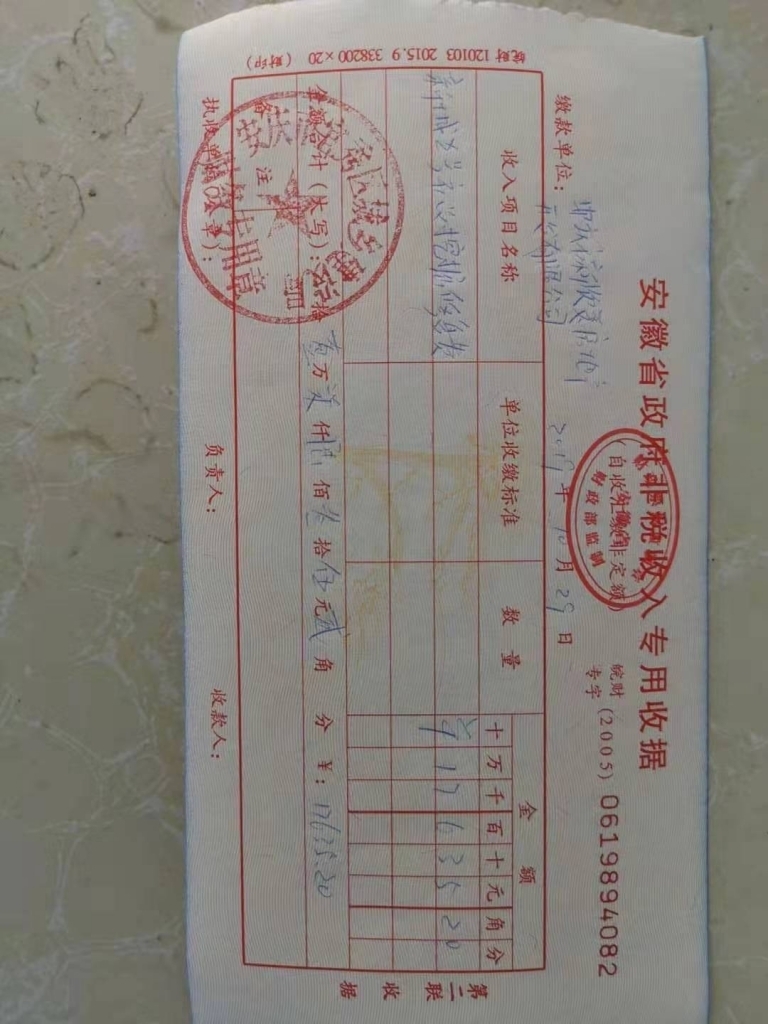 安徽省政府非税收入专用收据
(自收汇缴非定额)
财政部监制
皖财
专字
(2005) 0619894082
缴款单位：
开发有限公司
2019年10月29日
收入项目名称
单位收缴标准
数量
金额
十万千百十元角分
1 7 6 3 5 2 0
金额合计（大写）： 拾壹万柒仟陆佰叁拾伍元贰角 分 ￥：17635.20
备注
执收单位（公章）：
负责人：
收款人：
专用章
第二联 收据
皖财 120103 2015.9 338200×20 (财印)